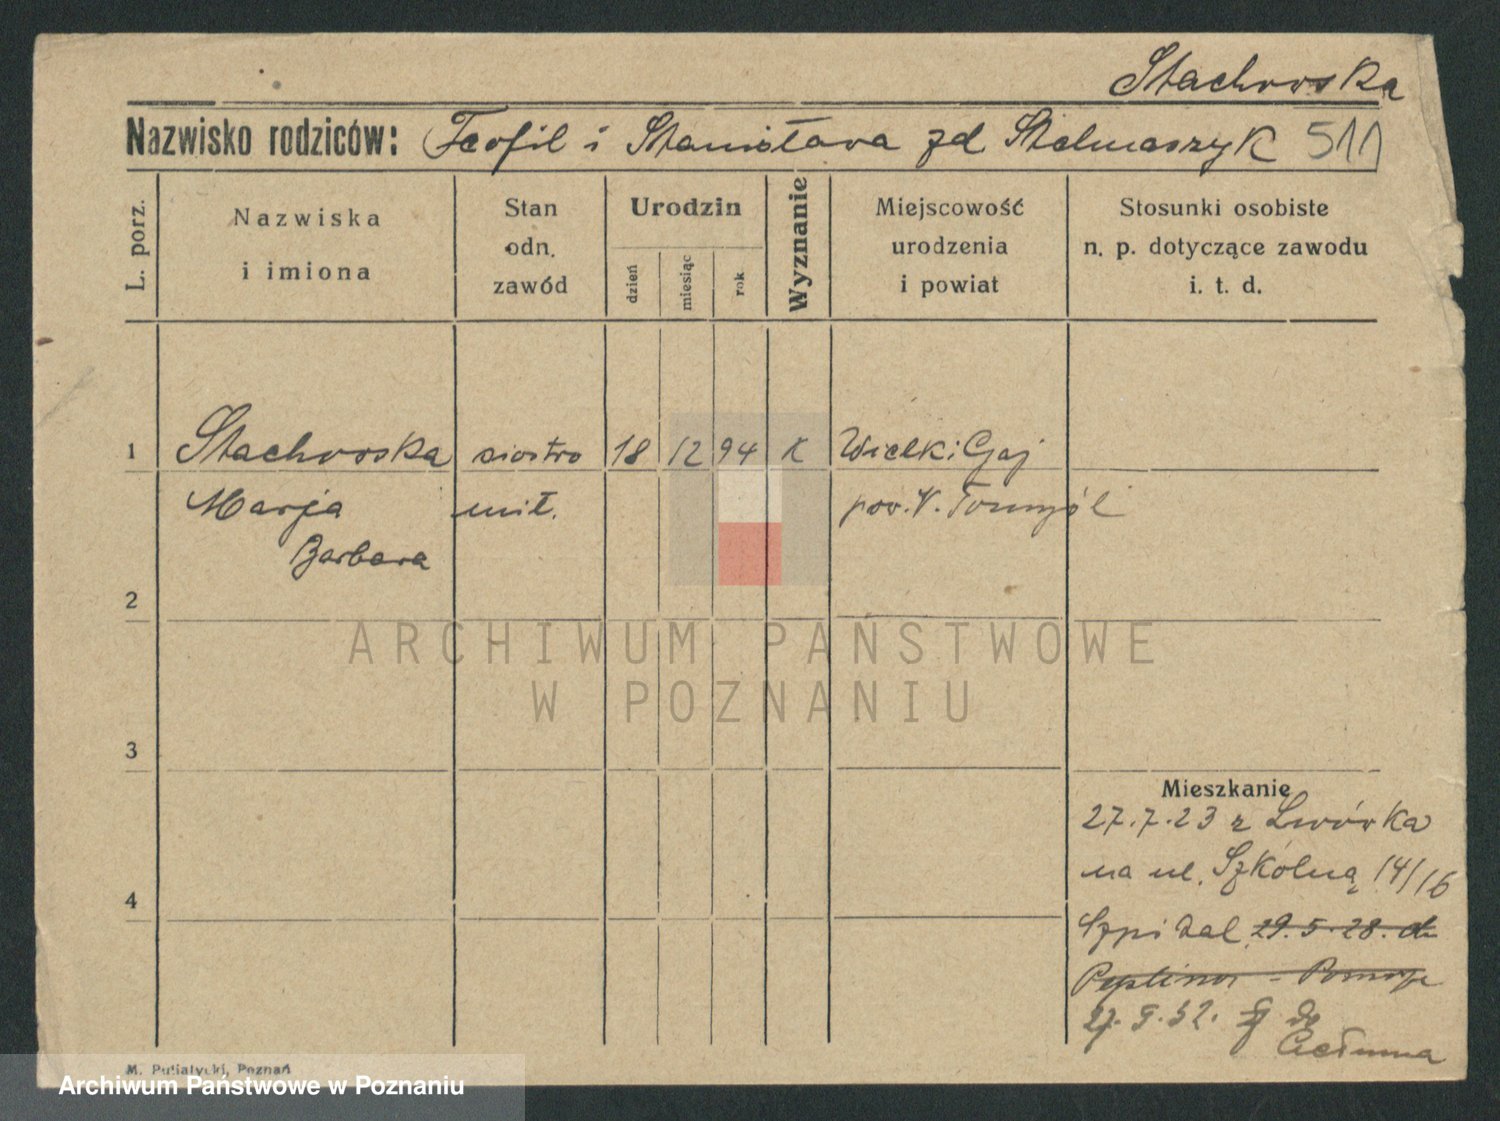 Stachowska
Nazwisko rodziców: Teofil i Stanisława zd Stelmaszyk 511
L. porz.
Nazwiska
i imiona
Stan
odn.
zawód
Urodzin
dzień
miesiąc
rok
Wyznanie
Miejscowość
urodzenia
i powiat
Stosunki osobiste
n. p. dotyczące zawodu
i. t. d.
1 Stachowska siostra 18 12 94 K Wielki Gaj
Marja mił. pow. N. Tomyśl
Barbara
2
ARCHIWUM PAŃSTWOWE
W POZNANIU
3
Mieszkanie
27.7.23 z Lwówka
na ul. Szkolną 14/16
4
Szpital 29.5.28. do
Peplinor - Pomorze
27. 9. 32. do
M. Putiatycki, Poznań
Archiwum Państwowe w Poznaniu